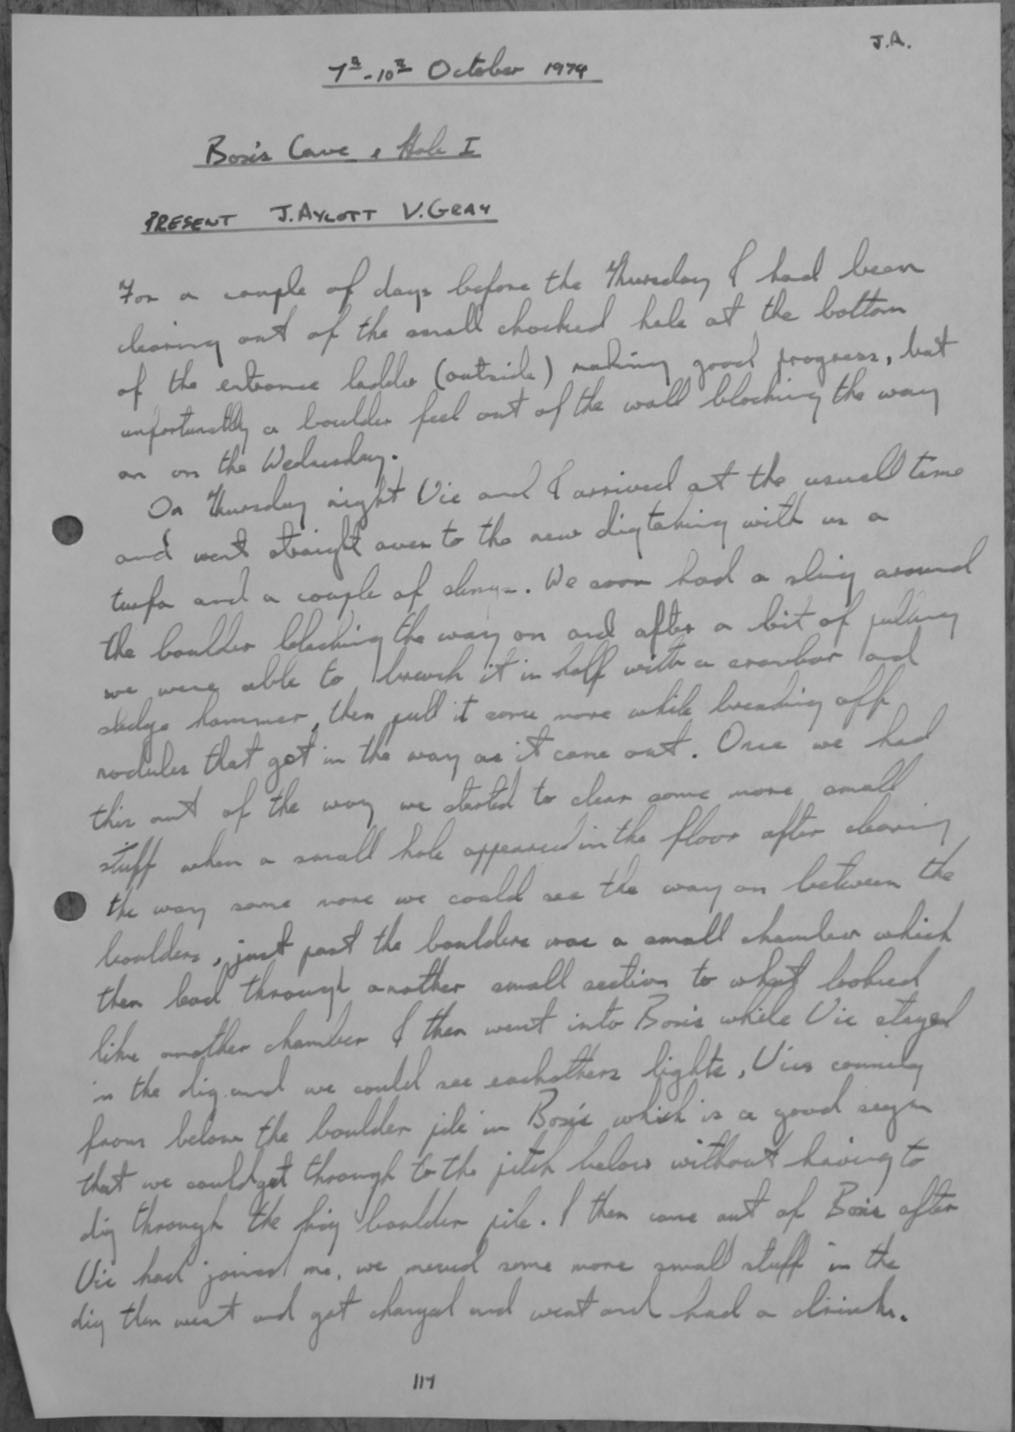 J.A.
7th - 10th October 1974
Boxis Cave & Hole I
PRESENT J. AYLOTT V. GRAY
For a couple of days before the Thursday I had been
clearing out of the small chocked hole at the bottom
of the entrance ladder (outside) making good progress, but
unfortunatly a boulder feel out of the wall blocking the way
on on the Wednesday.
On Thursday night Vic and I arrived at the usuall time
and went straight over to the new dig taking with us a
and a couple of slings. We soon had a sling around
the boulder blocking the way on and after a bit of pulling
we were able to break it in half with a crowbar and
sledge hammer, then pull it some more while breaking off
nodules that got in the way as it came out. Once we had
this out of the way we started to clear some more small
stuff when a small hole appeared in the floor after clearing
the way some more we could see the way on between the
boulders, just past the boulders was a small chamber which
then lead through another small section to what looked
like another chamber I then went into Boxis while Vic stayed
in the dig and we could see eachothers lights, Vics coming
from below the boulder pile in Boxis which is a good seign
that we could get through to the pitch below without having to
dig through the big boulder pile. I then came out of Boxis after
Vic had joined me, we moved some more small stuff in the
dig then went and got changed and went and had a drink.
117